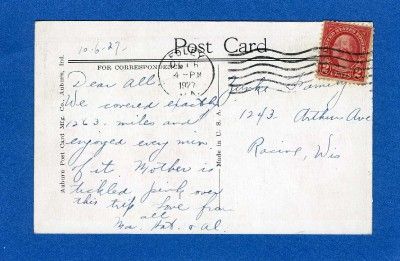 10-6-27-
Post Card
FOR CORRESPONDENCE
4-PM
1927
Dear All.
We covered exactly
1263 miles and
enjoyed every min.
of it. Mother is
tickled pink over
this trip. Love from
all
Ma, Pat. & Al.
Family
1243 Arthur Ave
Racine, Wis
Auburn Post Card Mfg. Co., Auburn, Ind.
Made in U. S. A.
2 2